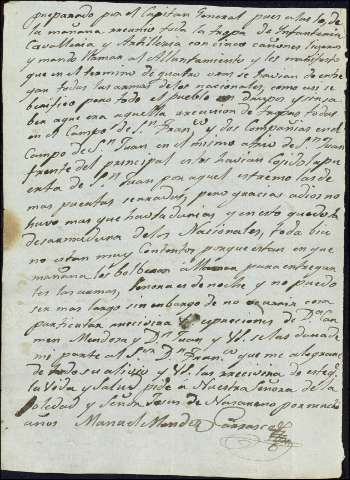 preparado por el Capitan General pues a las 10, de
la mañana reunio toda la tropa de Infanteria
Cavalleria y Artilleria con cinco cañones
y mando llamar al Alluntamiento y les manifesto
que en el termino de quatro oras se havian de entre
gar todas las armas de los nacionales, como asi se
berifico pero todo el pueblo
ber que era aquella reunion de tropas todas
en el Campo de Sn. Franco. y dos Companias en el
Campo de Sn. Juan en el mismo atrio de Sn. Juan
frente del principal estos havian cojido la pu
erta de Sn. Juan por aquel estremo las de
mas puertas serradas, pero gracias a dios no
huvo mas que havladurias y en esto quedo el
desarme de los Nacionales, toda bia
no estan muy Contentos porque estan en que
mañana les bolberan a llamar para entregar
les las armas, senora es de noche y no puedo
ser mas largo sin embargo de no ocurrir cosa
particular recivira espreciones de Da. Car
men Mendoza y Dn. Juan y VS. se las dara de
mi parte al Sr. Dn. Franco. que me alegrare
de todo su alivio y VS. las recivira de este q.
la vida y Salud pide a Nuestra Señora de la
Soledad y Señor Jesus de Nazareno por muchos
años Manuel Mendez Carrasco